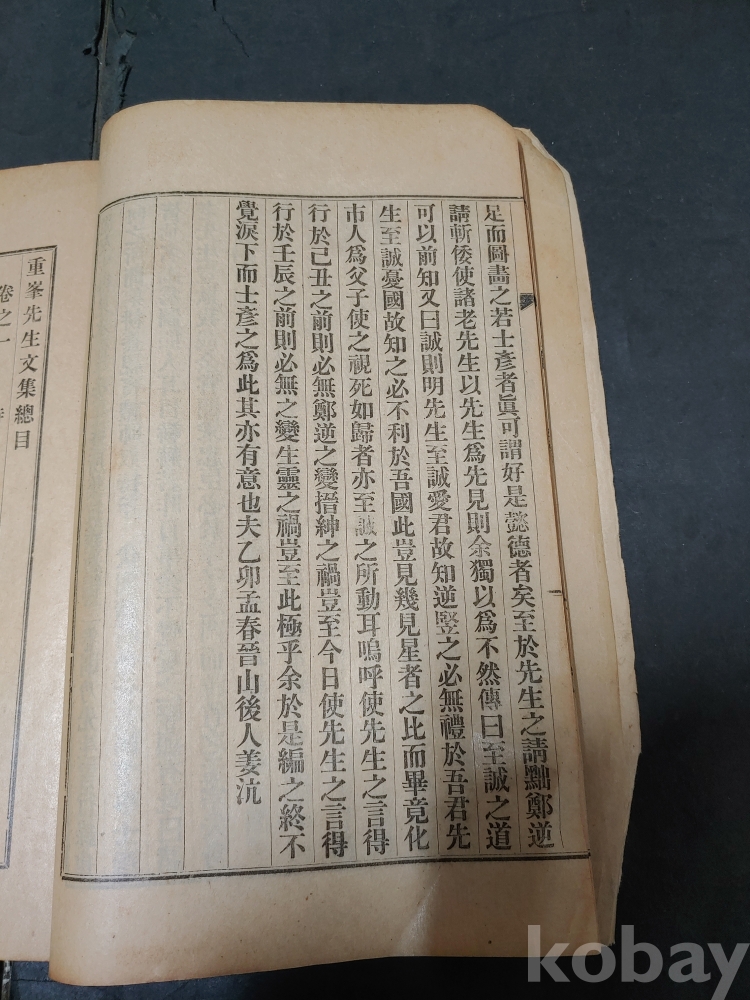 足而圖畵之若士彥者眞可謂好是懿德者矣至於先生之請黜鄭逆
請斬倭使諸老先生以先生爲先見則余獨以爲不然傳曰至誠之道
可以前知又曰誠則明先生至誠愛君故知逆竪之必無禮於吾君先
生至誠憂國故知之必不利於吾國此豈見幾見星者之比而畢竟化
市人爲父子使之視死如歸者亦至誠之所動耳嗚呼使先生之言得
行於己丑之前則必無鄭逆之變搢紳之禍豈至今日使先生之言得
行於壬辰之前則必無之變生靈之禍豈至此極乎余於是編之終不
覺淚下而士彥之爲此其亦有意也夫乙卯孟春晉山後人姜沆
重峯先生文集總目
卷之一
kobay